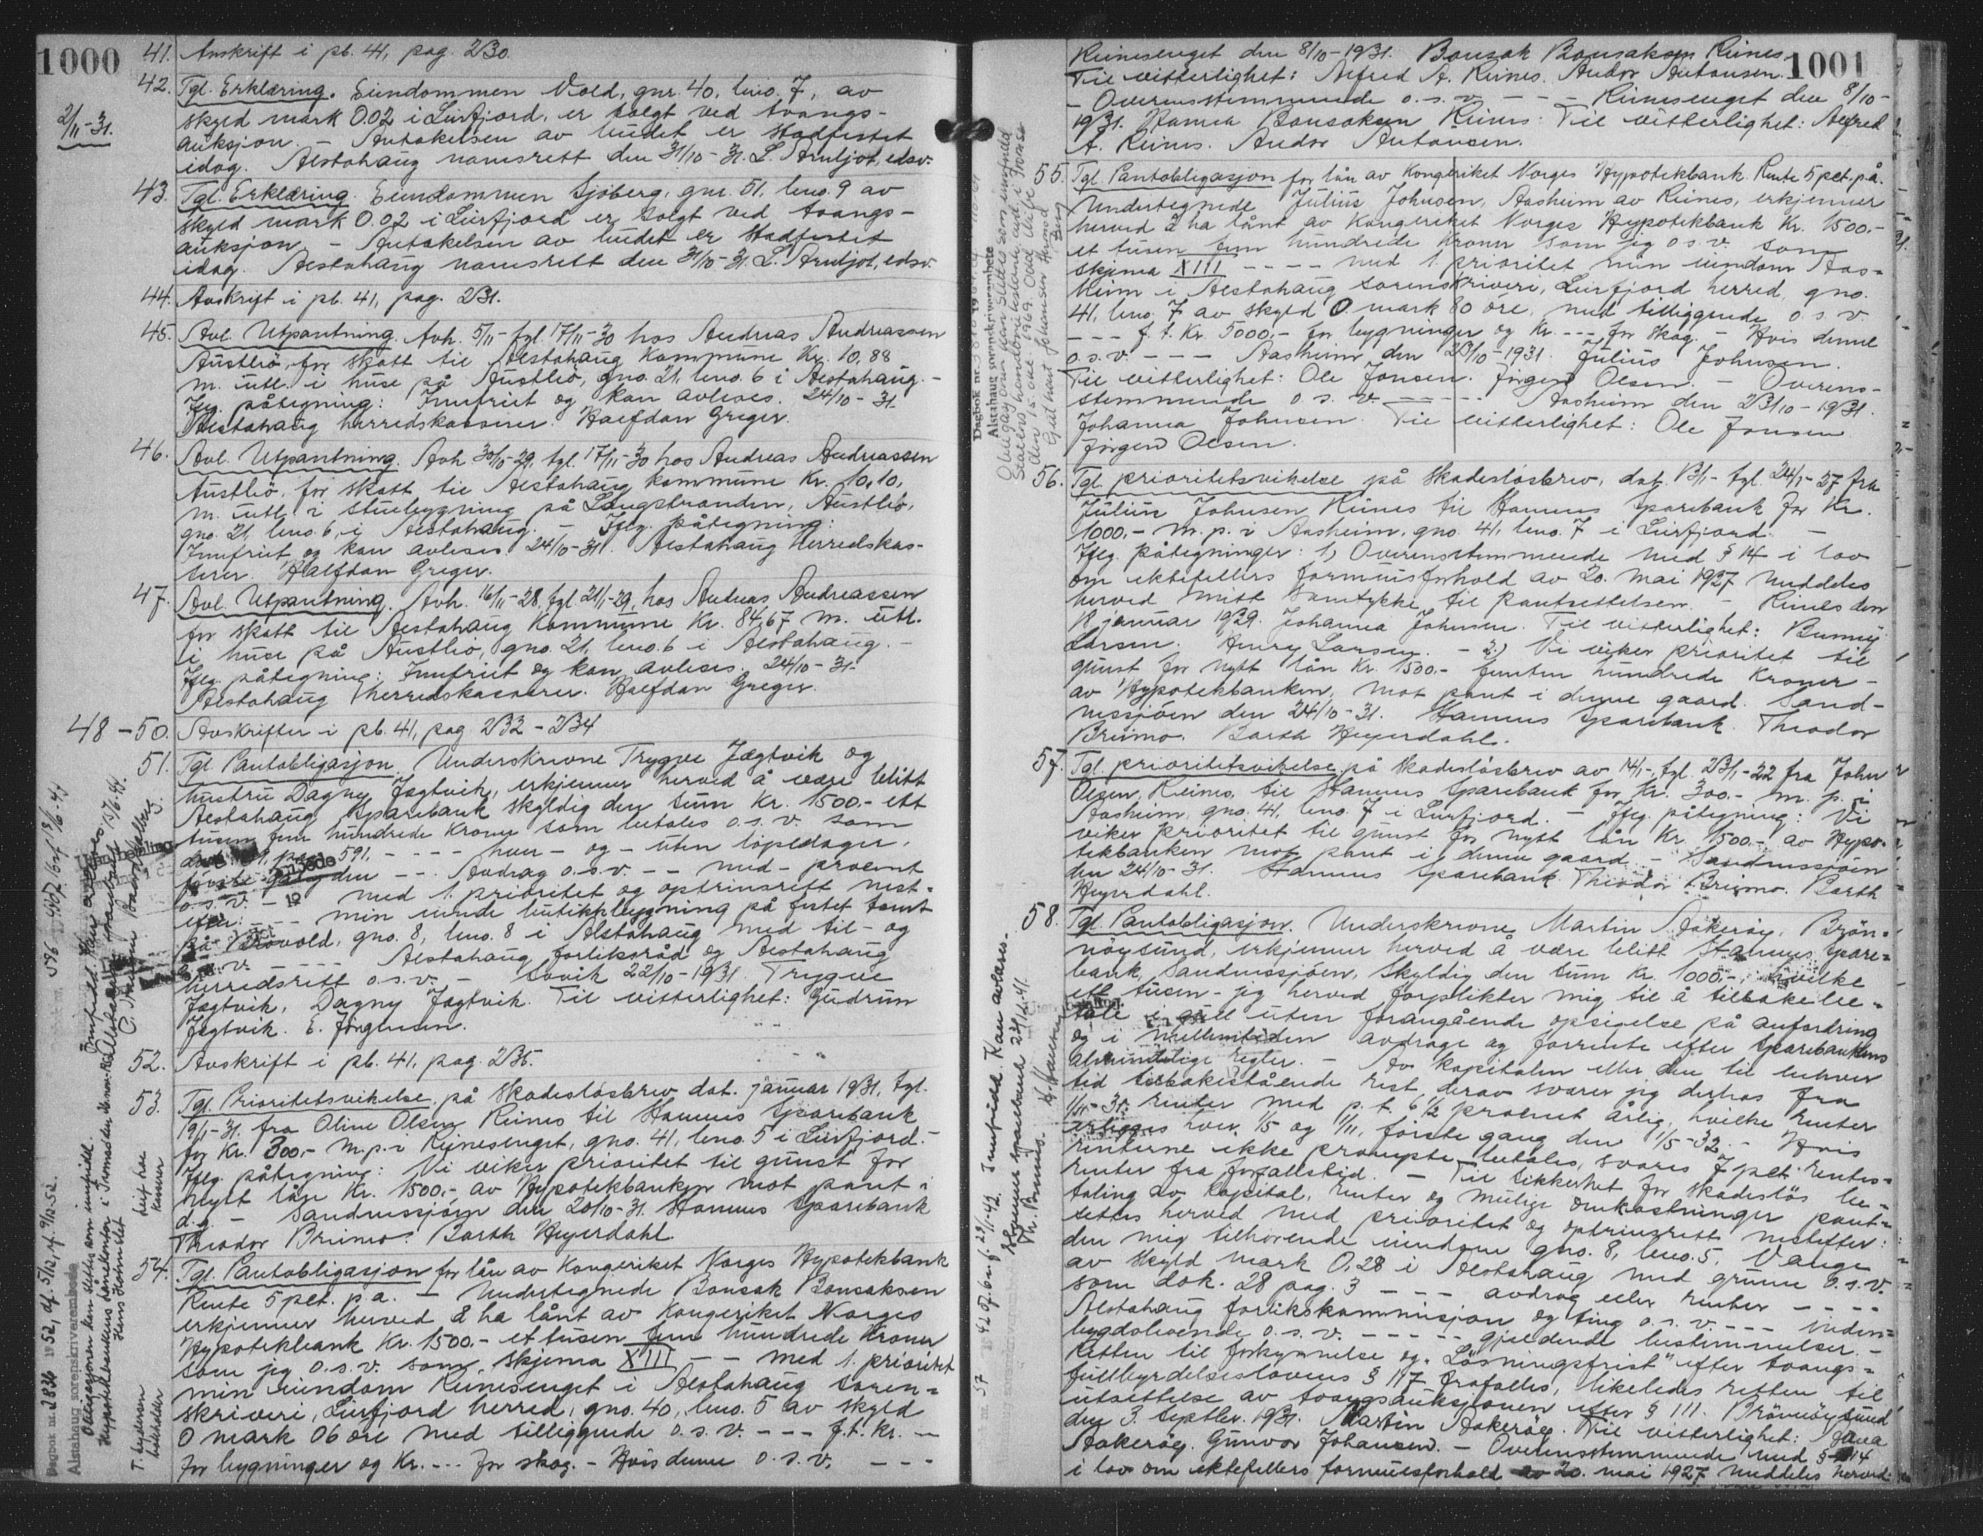 1000
41. Avskrift i pb. 41, pag. 230.
42. Tgl. Erklæring. Eiendommen Vold, gnr. 40, bno. 7, av
2/11-31.
skyld mark 0.02 i Leirfjord, er solgt ved tvangs-
auksjon. - Antakelsen av budet er stadfestet
idag. Alstahaug namsrett den 31/10-31. L. Arntjot, edsv.
43. Tgl. Erklæring. Eiendommen Sjöberg, gnr. 51, bno. 9 av
skyld mark 0.02 i Leirfjord er solgt ved tvangs-
auksjon - Antakelsen av budet er stadfestet
idag. Alstahaug namsrett den 31/10-31. L. Arntjot, edsv.
44. Avskrift i pb. 41, pag. 231.
45. Avl. Utpantning. Avh. 5/11- tgl. 17/11-30 hos Andreas Andreassen
Austbö, for skatt til Alstahaug kommune Kr. 10,88
m. utl. i huse på Austbö, gno. 21, bno. 6 i Alstahaug. -
Jfg. påtegning: Innfriet og kan avleses. 24/10-31.
Alstahaug herredskasserer. Halfdan Greger.
46. Avl. Utpantning. Avh. 30/10-29, tgl. 17/11-30 hos Andreas Andreassen
Austbö, for skatt til Alstahaug kommune Kr. 10,10,
m. utl. i stuebygning på Langstranden, Austbö,
gno. 21, bno. 6, i Alstahaug. - Jfg. påtegning:
Innfriet og kan avleses 24/10-31. Alstahaug herredskas-
serer. Halfdan Greger.
47. Avl. Utpantning. Avh. 16/11-28, tgl. 21/1-29, hos Andreas Andreassen
for skatt til Alstahaug kommune Kr. 84,67 m. utl.
i huse på Austbö, gno. 21, bno. 6 i Alstahaug. -
Jfg. påtegning: Innfriet og kan avleses. 24/10-31.
Alstahaug herredskasserer. Halfdan Greger.
48-50. Avskrifter i pb. 41, pag 232-234
51. Tgl. Pantobligasjon. Underskrevne Trygve Jægtvik og
hustru Dagny Jægtvik, erkjenner herved å være blitt
Alstahaug Sparebank skyldig den sum Kr. 1500.- ett
tusen fem hundrede kroner som betales o.s.v. som
591. ---- hver - og - uten löpedager.
den --- Avdrag o.s.v. -- med - procent
o.s.v. - med 1. prioritet og optrinsrett nest-
efter: --- min eiende butikkbygning på festet tomt
på Brovold, gno. 8, bno. 8 i Alstahaug med til- og
o.s.v. ---- Alstahaug forliksråd og Alstahaug
herredsrett o.s.v. - Sövik 22/10-1931. Trygve
Jægtvik, Dagny Jægtvik. Til vitterlighet: Gudrun
Jægtvik. E. Jörgensen.
52. Avskrift i pb. 41, pag. 235.
53. Tgl. Prioritetsvikelse på skadeslösbrev, dat. januar 1931, tgl.
19/1-31. fra Oline Olsen Reines til Stamnes Sparebank
for Kr. 300,- m.p. i Reinesenget, gno. 41, bno. 5 i Leirfjord. -
Jfg. påtegning: Vi viker prioritet til gunst for
nytt lån Kr. 1500.- av Hypotekbanken mot pant i
d.g. - Sandnessjöen den 20/10-31. Stamnes Sparebank
Theodor Brinmo. Barth Heyerdahl.
54. Tgl. Pantobligasjon for lån av Kongeriket Norges Hypotekbank
Rente 5 pct. p.a. - Undertegnede Bonsak Bonsaksen
erkjenner herved å ha lånt av Kongeriket Norges
Hypotekbank Kr. 1500.- et tusen fem hundrede kroner
som jeg o.s.v. som skjema XIII -- med 1. prioritet
min eiendom Reinesenget i Alstahaug soren-
skriveri, Leirfjord herred, gno. 40, bno. 5 av skyld
0 mark 06 öre med tilliggende o.s.v. --- f.t. kr. -
for bygninger og Kr. --- for skog. - Hvis denne o.s.v. ---
Dagbok nr. 2836 1952, df. 5/12, rf. 9/12-52.
Alstahaug sorenskriverembede
Obligasjonen kan slettes som innfridd.
Hypotekbankens lånekontor i Tromsö den
T. Pedersen
bokholder
Leif Lae
kasserer
1001
Reinesenget den 8/10-1931. Bonsak Bonsaksen Reines.
Til vitterlighet: Alfred A. Reines. Andor Antonsen.
- Overensstemmende o.s.v. --- Reinesenget den 8/10-
1931. Hanna Bonsaksen Reines. Til vitterlighet: Alfred
A. Reines. Andor Antonsen.
55. Tgl. Pantobligasjon for lån av Kongeriket Norges Hypotekbank. Rente 5 pct. p.a.
Undertegnede Julius Johnsen, Aasheim av Reines, erkjenner
herved å ha lånt av Kongeriket Norges Hypotekbank Kr. 1500.-
et tusen fem hundrede kroner som jeg o.s.v. som
skjema XIII ---- med 1. prioritet min eiendom Aas-
heim i Alstahaug sorenskriveri, Leirfjord herred, gno.
41, bno. 7 av skyld 0 mark 80 öre, med tilliggende o.s.v.
--- f.t. Kr. 5000,- for bygninger og Kr. --- for skog. - Hvis denne
o.s.v. --- Aasheim den 23/10-1931. Julius Johnsen.
Til vitterlighet: Ole Jonsen. Jörgen Olsen. - Overens-
stemmende o.s.v. ---- Aasheim den 23/10-1931.
Johanna Johnsen. Til vitterlighet: Ole Jonsen
Jörgen Olsen.
56. Tgl. prioritetsvikelse på skadeslösbrev, dat. 13/1- tgl. 24/1-27 fra
Julius Johnsen, Reines til Stamnes Sparebank for Kr.
1000,- m.p. i Aasheim, gno. 41, bno. 7 i Leirfjord. -
Jfg. påtegninger: 1) Overensstemmende med § 14 i lov
om ektefellers formuesforhold av 20. mai 1927 meddeles
herved mitt samtykke til pantsettelsen. - Reines den
18 januar 1929. Johanna Johnsen. Til vitterlighet:
Larsen. Henry Larsen. - 2) Vi viker prioritet til
gunst for nytt lån Kr. 1500.- femten hundrede kroner -
av Hypotekbanken, mot pant i denne gaard. Sand-
nessjöen den 24/10-31. Stamnes Sparebank. Theodor
Brinmo. Barth Heyerdahl.
57. Tgl. prioritetsvikelse på skadeslösbrev av 14/1-, tgl. 23/1-22 fra John
Olsen, Reines, til Stamnes Sparebank for Kr. 300.- m.p. i
Aasheim, gno. 41, bno. 7 i Leirfjord. - Jfg. påtegning: Vi
viker prioritet til gunst for nytt lån Kr. 1500.- av Hypo-
tekbanken mot pant i denne gaard. - Sandnessjöen
den 24/10-31. Stamnes Sparebank. Theodor Brinmo. Barth
Heyerdahl.
58. Tgl. Pantobligasjon. Underskrevne Martin Aakeröy, Brön-
nöysund, erkjenner herved å være blitt Stamnes Spare-
bank, Sandnessjöen, skyldig den sum Kr. 1000.-, hvilke
ett tusen - jeg herved forplikter mig til å tilbakebe-
tale i gull uten forangående opsigelse på anfordring
og i mellemtiden avdrage og forrente efter Sparebankens
almindelige regler. - Av kapitalen eller den til enhver
tid tilbakestående rest derav svarer jeg derhos fra
1/11-31. renter med p.t. 6 1/2 procent årlig, hvilke renter
erlegges hver 1/5 og 1/11, förste gang den 1/5-32. - Hvis
renterne ikke prompte betales, svares 7 pct. rentes-
renter fra forfallstid. - Til sikkerhet for skadeslös be-
taling av kapital, renter og mulige omkostninger pant-
settes herved med prioritet og optrinsrett nestefter:
den mig tilhörende eiendom gno. 8, bno. 5, Vange
av skyld mark 0,28 i Alstahaug med grunn o.s.v.
som dok. 28 pag. 3 --- avdrag eller renter ----
Alstahaug forlikskommisjon og ting o.s.v. --- inden-
bygdsboende o.s.v. ----- gjældende bestemmelser. -
Retten til forkynnelse og "Lösningsfrist" efter tvangs-
fullbyrdelseslovens § 117 frafalles, likeledes retten til
utsettelse av tvangsauksjonen efter § 111. Brönnöysund
den 3. septbr. 1931. Martin Aakeröy. Til vitterlighet:
Aakeröy. Gunvor Johansen. - Overensstemmende med § 14
i lov om ektefellers formuesforhold av 20. mai 1927 meddeles herved